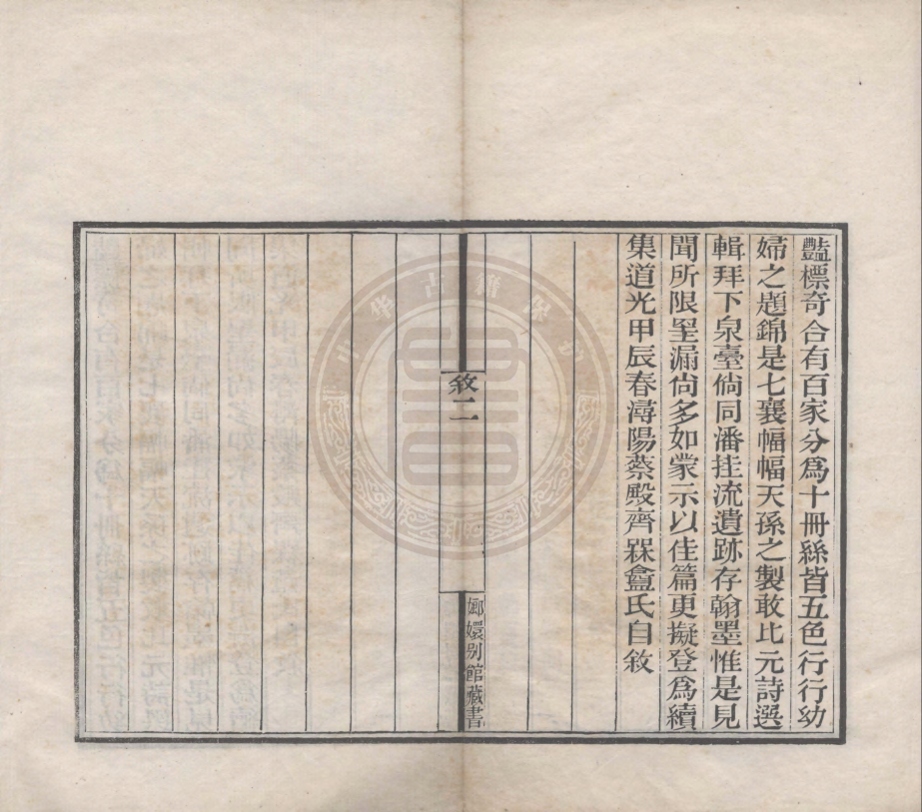 豔標奇合有百家分爲十冊絲皆五色行行幼
婦之題錦是七襄幅幅天孫之製敢比元詩選
輯拜下泉臺倘同潘挂流遺跡存翰墨惟是見
聞所限罣漏尙多如蒙示以佳篇更擬登爲續
集道光甲辰春潯陽蔡殿齊槑盦氏自敘
敘二
嫏嬛別館藏書